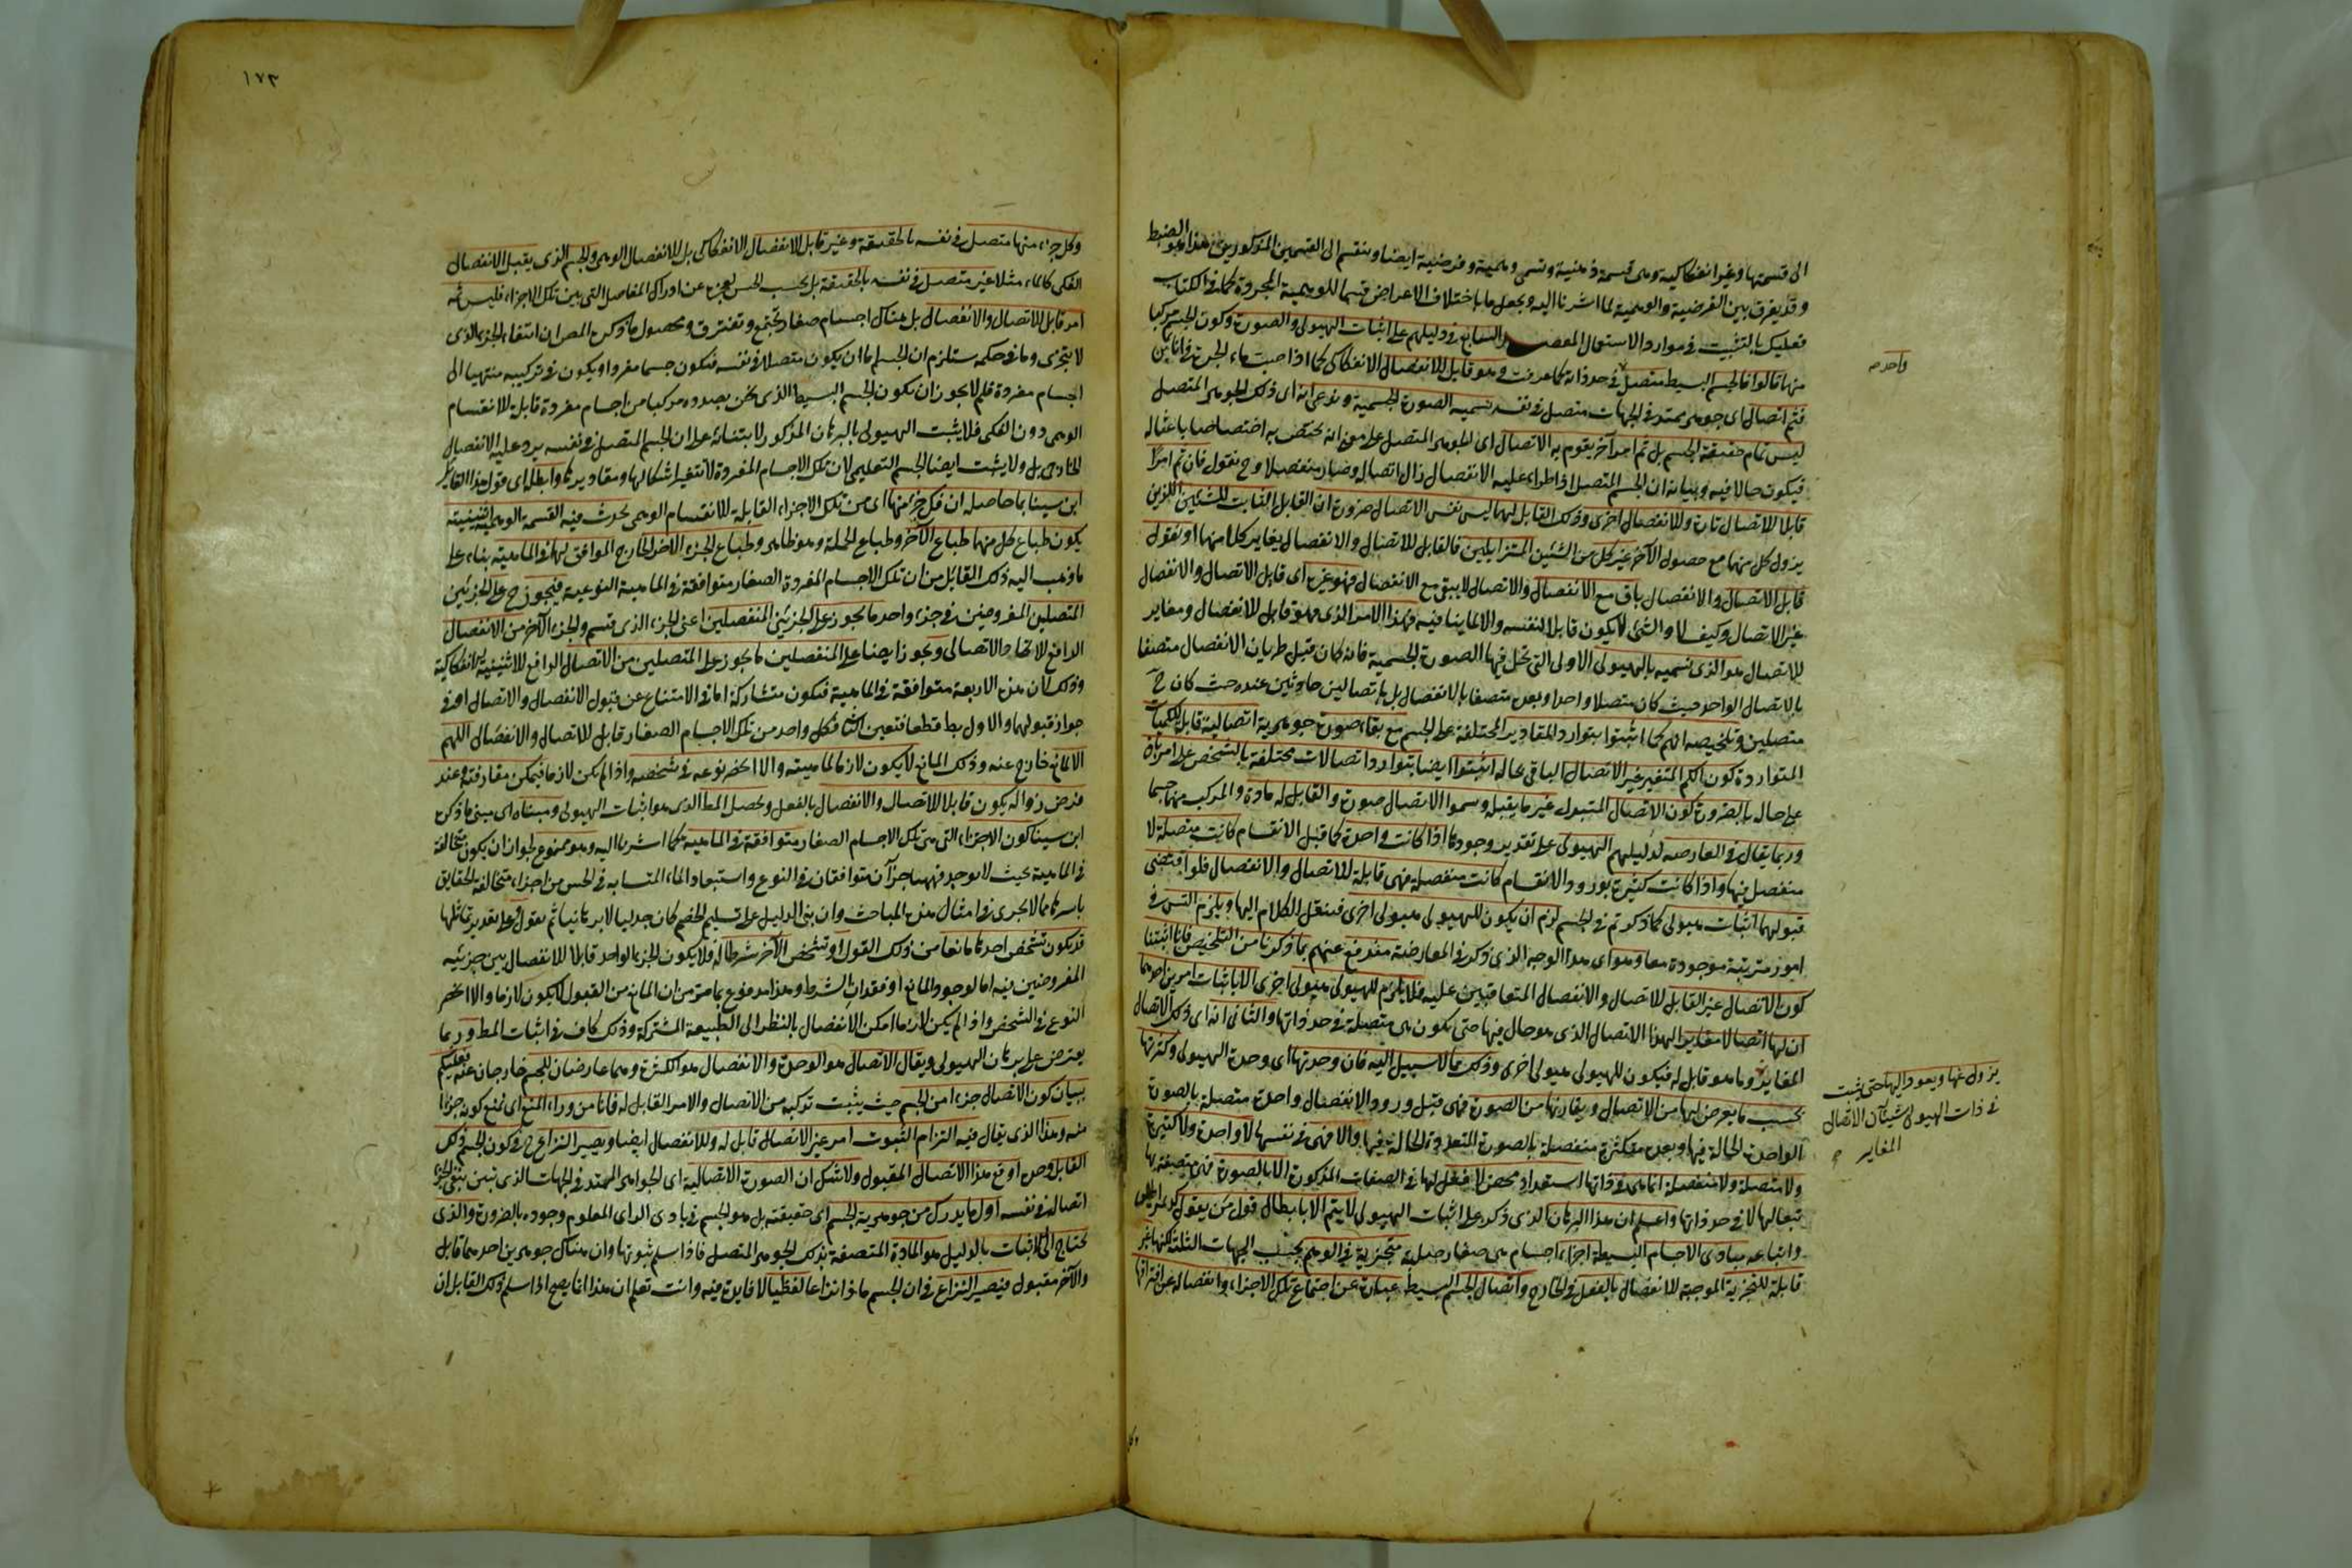 الى قسمتها وغير انفكاكية وهى قسمة ذهنية وتسمى وهمية وفرضية ايضا وينقسم الى القسمين المذكورين هذا هو الضبط
وقد يفرق بين الفرضية والوهمية لما اشرنا اليه ويجعل ما باختلاف الاعراض قسما للوهمية المجردة كما فى الكتاب
فعليك بالتثبت فى موارد الاستعمال المقصد السابع فى دليلهم على اثبات الهيولى والصورة وكون الجسم مركبا
منها قالوا فالجسم البسيط متصل فى حد ذاته كما عرفت وهو قابل للانفصال الانفكاكى كما اذا صب ماء الجرة فى اناءين
فثم اتصال اى جوهر ممتد فى الجهات متصل فى نفسه نسميه الصورة الجسمية وندعى انه اى ذلك الجوهر المتصل
ليس تمام حقيقة الجسم بل ثم امر آخر يقوم به الاتصال اى الجوهر المتصل على معنى انه يختص به اختصاصا ناعتا له
فيكون حالا فيه وبيانه ان الجسم المتصل اذا طراء عليه الانفصال زال اتصاله وصار منفصلا وح نقول فان ثم امرا
قابلا للاتصال تارة وللانفصال اخرى وذلك القابل لهما ليس نفس الاتصال ضرورة ان القابل الثابت للشيئين اللذين
يزول كل منهما مع حصول الآخر غير كل من الشيئين المتزايلين فالقابل للاتصال والانفصال يغاير كلا منهما او نقول
قابل الاتصال والانفصال باق مع الانفصال والاتصال لا يبقى مع الانفصال فهو غيره اى قابل الاتصال والانفصال
غير الاتصال وكيف لا والشئ لا يكون قابلا لنفسه ولا لما ينافيه فهذا الامر الذى هو قابل للانفصال ومغاير
للاتصال هو الذى نسميه بالهيولى الاولى التى تحل فيها الصورة الجسمية فانه كان قبل طريان الانفصال متصفا
بالاتصال الواحد حيث كان متصلا واحدا وبعده متصفا بالانفصال بل باتصالين حادثين عنده حيث كان ح
متصلين وتلخيصه انهم كما اثبتوا بتوارد المقادير المختلفة على الجسم مع بقاء صورة جوهرية اتصالية قابلة للكميات
المتواردة كون الكم المتغير غير الاتصال الباقى بحاله اثبتوا ايضا بتوارد اتصالات مختلفة بالشخص على امر باق
على حاله بالضرورة كون الاتصال المقبول غير ما يقبله وسموا الاتصال صورة والقابل له مادة والمركب منهما جسما
وربما يقال فى المعارضه لدليلهم الهيولى على تقدير وجودها اذا كانت واحدة كما قبل الانقسام كانت متصلة لا
منفصل فيها واذا كانت كثيرة بورود الانقسام كانت منفصلة فهى قابلة للاتصال والانفصال فلو اقتضى
قبولهما اثبات هيولى كما ذكرتم فى الجسم لزم ان يكون للهيولى هيولى اخرى فينقل الكلام اليها ويلزم التس فى
امور مترتبة موجودة معا وهو اى هذا الوجه الذى ذكر فى المعارضة مندفع عنهم بما ذكرنا من التلخيص فانا اثبتنا
كون الاتصال غير القابل للاتصال والانفصال المتعاقبين عليه فلا يلزم للهيولى هيولى اخرى الا باثبات امرين احدهما
ان لها اتصالا مغايرا لهذا الاتصال الذى هو حال فيها حتى يكون هى متصلة فى حد ذاتها والثانى انه اى ذلك الاتصال
المغاير وما هو قابل له فيكون للهيولى هيولى اخرى وذلك مما لا سبيل اليه فان وحدتها اى وحدة الهيولى وكثرتها
بحسب ما يعرض لها من الاتصال ويقارنها من الصورة فهى قبل ورود الانفصال واحدة متصلة بالصورة
الواحدة الحالة فيها وبعده متكثرة منفصلة بالصورة المتعددة الحالة فيها والا فهى فى نفسها لا واحدة ولا كثيرة
ولا متصلة ولا منفصلة انما هى فى ذاتها استعداد محض لا فعل لها فى الصفات المذكورة الا بالصورة فهى متصفة بها
تبعا لها لا فى حد ذاتها واعلم ان هذا البرهان الذى ذكر على اثبات الهيولى لا يتم الا بابطال قول من يقول كذيمقراطيس
واتباعه مبادى الاجسام البسيطة اجزاء اجسام هى صغار صلبة متجزية فى الوهم بحسب الجهات الثلثة لكنها غير
قابلة للتجزية الموجبة للانفصال بالفعل فى الخارج واتصال الجسم البسيط عبارة عن اجتماع تلك الاجزاء وانفصاله عن افتراقها
واحد صح
يزول عنها ويعود اليها حتى يثبت
فى ذات الهيولى شيئان الاتصال
المغاير صح
١٧٣
وكل جزء منها متصل فى نفسه بالحقيقة وغير قابل للانفصال الانفكاكى بل للانفصال الوهمى والجسم الذى يقبل الانفصال
الفكى كالماء مثلا غير متصل فى نفسه بالحقيقة بل بحسب الحس لعجزه عن ادراك المفاصل التى بين تلك الاجزاء فليس ثمه
امر قابل للاتصال والانفصال بل هناك اجسام صغار تجتمع وتفترق ومحصول ما ذكره المص ان انتفاء الجزء الذى
لا يتجزى وما فى حكمه يستلزم ان الجسم اما ان يكون متصلا فى نفسه فيكون جسما مفردا او يكون فى تركيبه منتهيا الى
اجسام مفردة فلم لا يجوز ان يكون الجسم البسيط الذى نحن بصدده مركبا من اجسام مفردة قابلة للانقسام
الوهمى دون الفكى فلا يثبت الهيولى بالبرهان المذكور لابتنائه على ان الجسم المتصل فى نفسه يرد عليه الانفصال
الخارجى بل ولا يثبت ايضا الجسم التعليمى لان تلك الاجسام المفردة لا تتغير اشكالها ومقاديرها وابطله اى قول هذا القايل
ابن سينا بما حاصله ان فكل جزء منها اى من تلك الاجزاء القابلة للانقسام الوهمى يحدث فيه القسمة الوهمية اثنينية
يكون طباع كل منهما طباع الآخر وطباع الجملة وهو ظاهر وطباع الجزء الآخر الخارج الموافق لهما فى الماهية بناء على
ما ذهب اليه ذلك القائل من ان تلك الاجسام المفردة الصغار متوافقة فى الماهية النوعية فيجوز ح على الجزئين
المتصلين المفروضين فى جزء واحد ما يجوز على الجزئين المنفصلين اعنى الجزء الذى قسم والجزء الآخر من الانفصال
الرافع للاتحاد والاتصالى ويجوز ايضا على المنفصلين ما يجوز على المتصلين من الاتصال الرافع للاثنينية الانفكاكية
وذلك لان هذه الاربعة متوافقة فى الماهية فيكون متشاركة اما فى الامتناع عن قبول الانفصال والاتصال او فى
جواز قبولهما والاول بط قطعا فتعين الثانى فكل واحد من تلك الاجسام الصغار قابل للاتصال والانفصال اللهم
الا لمانع خارج عنه وذلك المانع لا يكون لازما لماهيته والا انحصر نوعه فى شخصه واذا لم يكن لازما فيمكن مفارقته وعند
فرض زواله يكون قابلا للاتصال والانفصال بالفعل ويحصل المط الذى هو اثبات الهيولى ومبناه اى مبنى ما ذكره
ابن سينا كون الاجزاء التى هى تلك الاجسام الصغار متوافقة فى الماهية كما اشرنا اليه وهو ممنوع لجواز ان يكون متخالفة
فى الماهية بحيث لا يوجد فيهما جزآن متوافقان فى النوع واستبعاد الماء المتشابه فى الحس من اجزاء متخالفة الحقايق
باسرها مما لا يجرى فى امثال هذه المباحث وان بنى الدليل على تسليم الخصم كان جدليا لا برهانيا ثم نقول وعلى تقدير تماثلها
قد يكون تشخص احدها مانعا من ذلك القول او تشخص الآخر شرطا له فلا يكون الجزء الواحد قابلا للانفصال بين جزئيه
المفروضين فيه اما لوجود المانع او فقدان الشرط وهذا مدفوع بما مر من ان المانع من القبول لا يكون لازما والا انحصر
النوع فى الشخص واذا لم يكن لازما امكن الانفصال بالنظر الى الطبيعة المشتركة وذلك كاف فى اثبات المط وربما
يعترض على برهان الهيولى ويقال الاتصال هو الوحدة والانفصال هو الكثرة وهما عارضان للجسم خارجان عنه فعليكم
ببيان كون الاتصال جزءا من الجسم حيث يثبت تركبه من الاتصال والامر القابل له فانا من وراء المنع اى نمنع كونه جزءا
منه وهذا الذى يقال فيه التزام لثبوت امر غير الاتصال قابل له وللانفصال ايضا ويصير النزاع ح فى كون الجسم ذلك
القابل وحده او مع هذا الاتصال المقبول ولا شك ان الصورة الاتصالية اى الجوهر الممتد فى الجهات الذى تبين بنفى الجزء
اتصاله فى نفسه اول ما يدرك من جوهرية الجسم اى حقيقته بل هو الجسم فى بادى الراى المعلوم وجوده بالضرورة والذى
يحتاج الى الاثبات بالدليل هو المادة المتصفة بذلك الجوهر المتصل فاذا سلم ثبوتها وان هناك جوهرين احدهما قابل
والآخر مقبول فيصير النزاع فى ان الجسم ماذا نزاعا لفظيا لا فايدة فيه وانت تعلم ان هذا انما يصح اذا سلم ذلك القايل ان